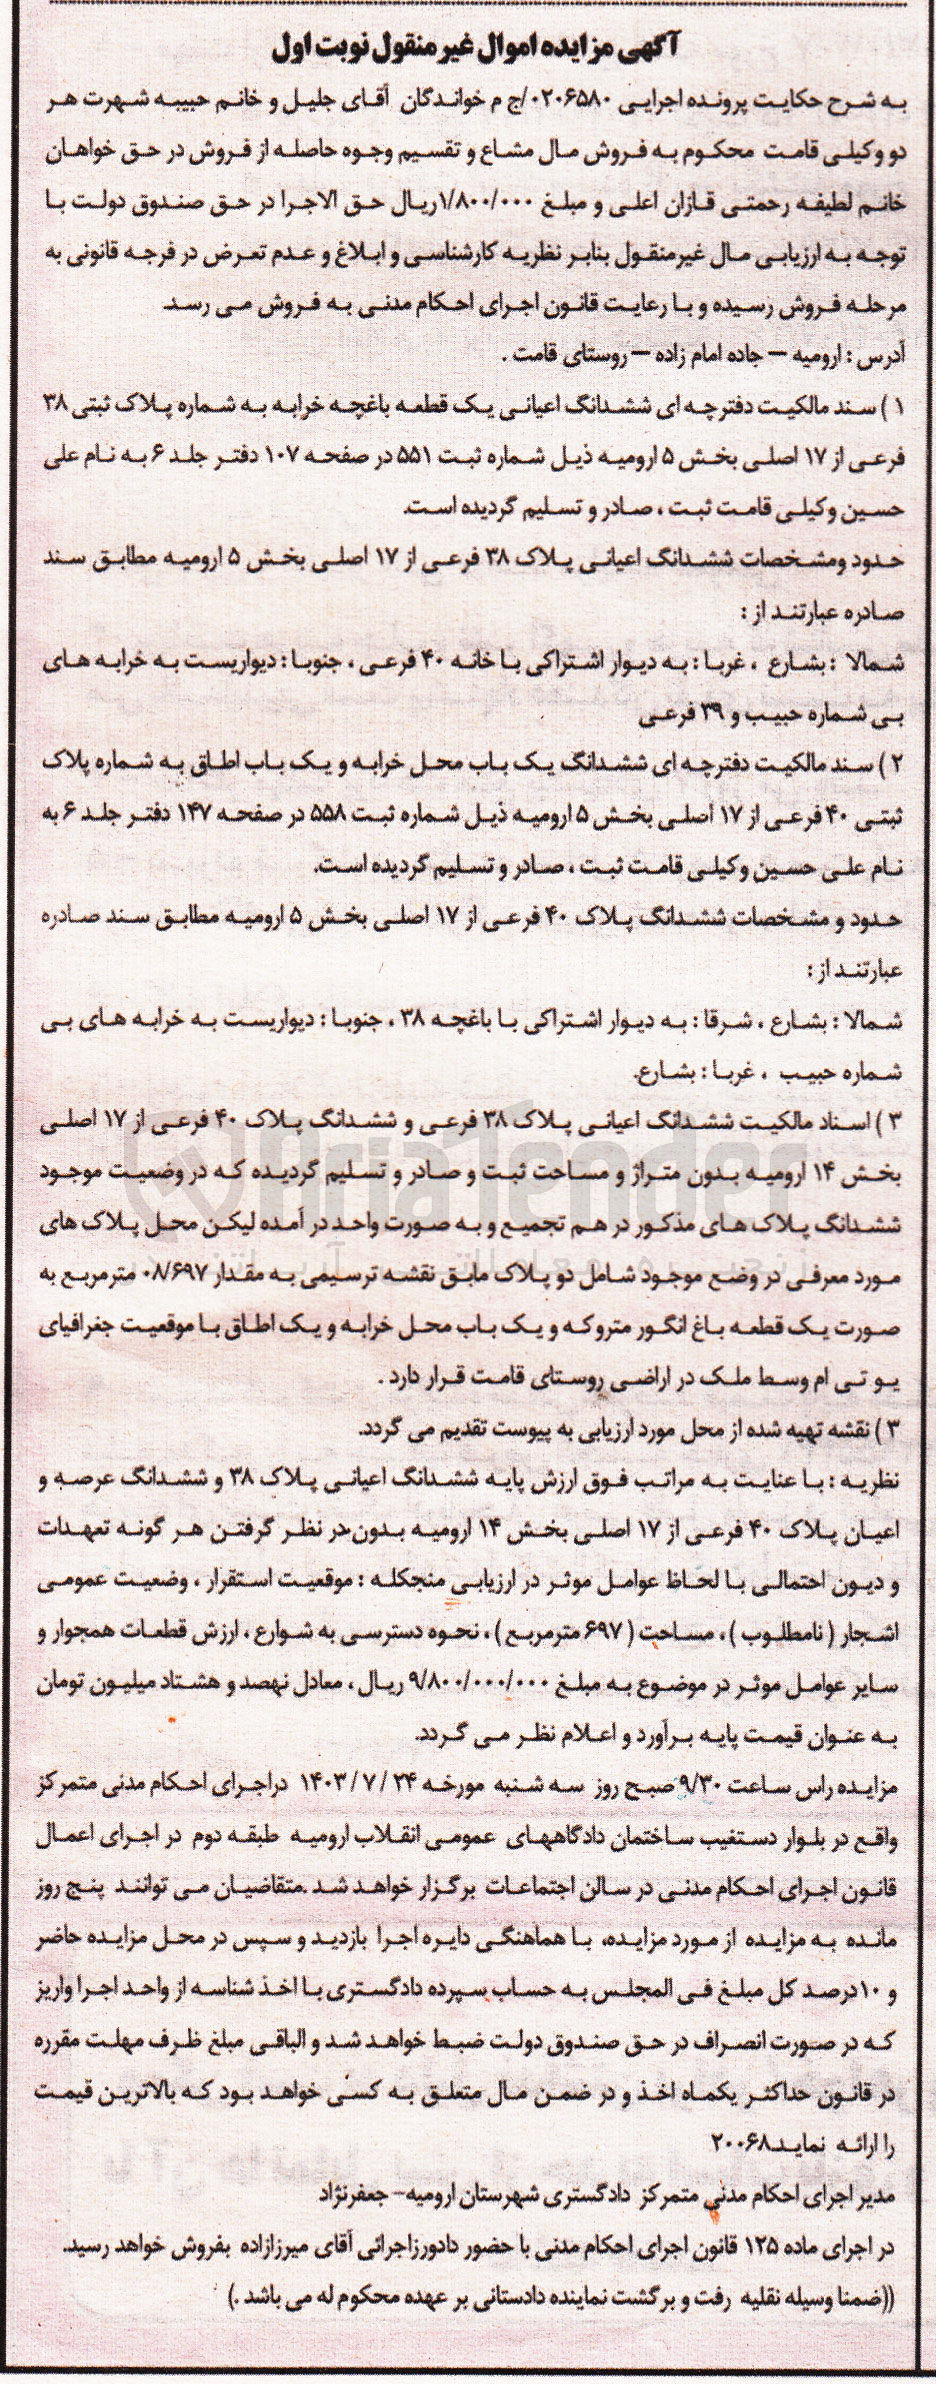 آگهی مزایده اموال غیر منقول نوبت اول
به شرح حکایت پرونده اجرایی ۰۲۰۶۵۸۰/ج م خواندگان آقای جلیل و خانم حبیبه شهرت هر
دو وکیلی قامت محکوم به فروش مال مشاع و تقسیم وجوه حاصله از فروش در حق خواهان
خانم لطیفه رحمتی قازان اعلی و مبلغ ۱/۸۰۰/۰۰۰ریال حق الاجرا در حق صندوق دولت با
توجه به ارزیابی مال غیرمنقول بنابر نظریه کارشناسی و ابلاغ و عدم تعرض در فرجه قانونی به
مرحله فروش رسیده و با رعایت قانون اجرای احکام مدنی به فروش می رسد.
آدرس : ارومیه – جاده امام زاده – روستای قامت .
۱ ) سند مالکیت دفترچه ای ششدانگ اعیانی یک قطعه باغچه خرابه به شماره پلاک ثبتی ۳۸
فرعی از ۱۷ اصلی بخش ۵ ارومیه ذیل شماره ثبت ۵۵۱ در صفحه ۱۰۷ دفتر جلد ۶ به نام علی
حسین وکیلی قامت ثبت ، صادر و تسلیم گردیده است.
حدود ومشخصات ششدانگ اعیانی پلاک ۳۸ فرعی از ۱۷ اصلی بخش ۵ ارومیه مطابق سند
صادره عبارتند از :
شمالا : بشارع ، غربا : به دیوار اشتراکی با خانه ۴۰ فرعی ، جنوبا : دیواریست به خرابه های
بی شماره حبیب و ۳۹ فرعی
۲ ) سند مالکیت دفترچه ای ششدانگ یک باب محل خرابه و یک باب اطاق به شماره پلاک
ثبتی ۴۰ فرعی از ۱۷ اصلی بخش ۵ ارومیه ذیل شماره ثبت ۵۵۸ در صفحه ۱۴۷ دفتر جلد ۶ به
نام علی حسین وکیلی قامت ثبت ، صادر و تسلیم گردیده است.
حدود و مشخصات ششدانگ پلاک ۴۰ فرعی از ۱۷ اصلی بخش ۵ ارومیه مطابق سند صادره
عبارتند از :
شمالا : بشارع ، شرقا : به دیوار اشتراکی با باغچه ۳۸ ، جنوبا : دیواریست به خرابه های بی
شماره حبیب ، غربا : بشارع.
۳ ) اسناد مالکیت ششدانگ اعیانی پلاک ۳۸ فرعی و ششدانگ پلاک ۴۰ فرعی از ۱۷ اصلی
بخش ۱۴ ارومیه بدون متراژ و مساحت ثبت و صادر و تسلیم گردیده که در وضعیت موجود
ششدانگ پلاک های مذکور در هم تجمیع و به صورت واحد در آمده لیکن محل پلاک های
مورد معرفی در وضع موجود شامل دو پلاک مابق نقشه ترسیمی به مقدار ۰۸/۶۹۷ مترمربع به
صورت یک قطعه باغ انگور متروکه و یک باب محل خرابه و یک اطاق با موقعیت جغرافیای
یو تی ام وسط ملک در اراضی روستای قامت قرار دارد .
۳ ) نقشه تهیه شده از محل مورد ارزیابی به پیوست تقدیم می گردد.
نظریه : با عنایت به مراتب فوق ارزش پایه ششدانگ اعیانی پلاک ۳۸ و ششدانگ عرصه و
اعیان پلاک ۴۰ فرعی از ۱۷ اصلی بخش ۱۴ ارومیه بدون در نظر گرفتن هر گونه تعهدات
و دیون احتمالی با لحاظ عوامل موثر در ارزیابی منجکله : موقعیت استقرار ، وضعیت عمومی
اشجار ( نامطلوب ) ، مساحت ( ۶۹۷ مترمربع ) ، نحوه دسترسی به شوارع ، ارزش قطعات همجوار و
سایر عوامل موثر در موضوع به مبلغ ۹/۸۰۰/۰۰۰/۰۰۰ ریال ، معادل نهصد و هشتاد میلیون تومان
به عنوان قیمت پایه برآورد و اعلام نظر می گردد.
مزایده راس ساعت ۹/۳۰ صبح روز سه شنبه مورخه ۲۴ / ۷ / ۱۴۰۳ دراجرای احکام مدنی متمرکز
واقع در بلوار دستغیب ساختمان دادگاههای عمومی انقلاب ارومیه طبقه دوم در اجرای اعمال
قانون اجرای احکام مدنی در سالن اجتماعات برگزار خواهد شد .متقاضیان می توانند پنج روز
مانده به مزایده از مورد مزایده، با هماهنگی دایره اجرا بازدید و سپس در محل مزایده حاضر
و ۱۰درصد کل مبلغ فی المجلس به حساب سپرده دادگستری با اخذ شناسه از واحد اجرا واریز
که در صورت انصراف در حق صندوق دولت ضبط خواهد شد و الباقی مبلغ ظرف مهلت مقرره
در قانون حداکثر یکماه اخذ و در ضمن مال متعلق به کسی خواهد بود که بالاترین قیمت
را ارائه نماید۲۰۰۶۸
مدیر اجرای احکام مدنی متمرکز دادگستری شهرستان ارومیه- جعفرنژاد
در اجرای ماده ۱۲۵ قانون اجرای احکام مدنی با حضور دادورزاجرائی آقای میرزازاده بفروش خواهد رسید.
((ضمنا وسیله نقلیه رفت و برگشت نماینده دادستانی بر عهده محکوم له می باشد .)
AriaTender